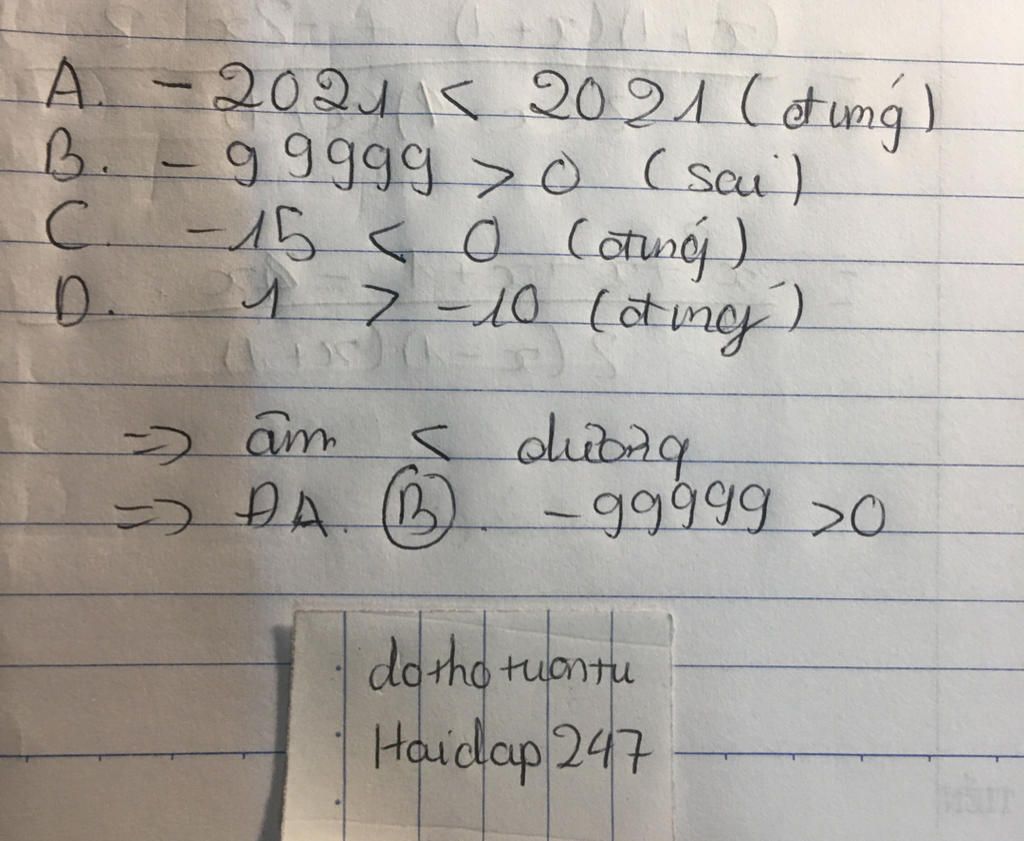 A. -2021 < 2021 (đúng)
B. -99999 > 0 (sai)
C. -15 < 0 (đúng)
D. 1 > -10 (đúng)
=> âm < dương
=> ĐA. B. -99999 >0
dothotuontu
Hoidap247